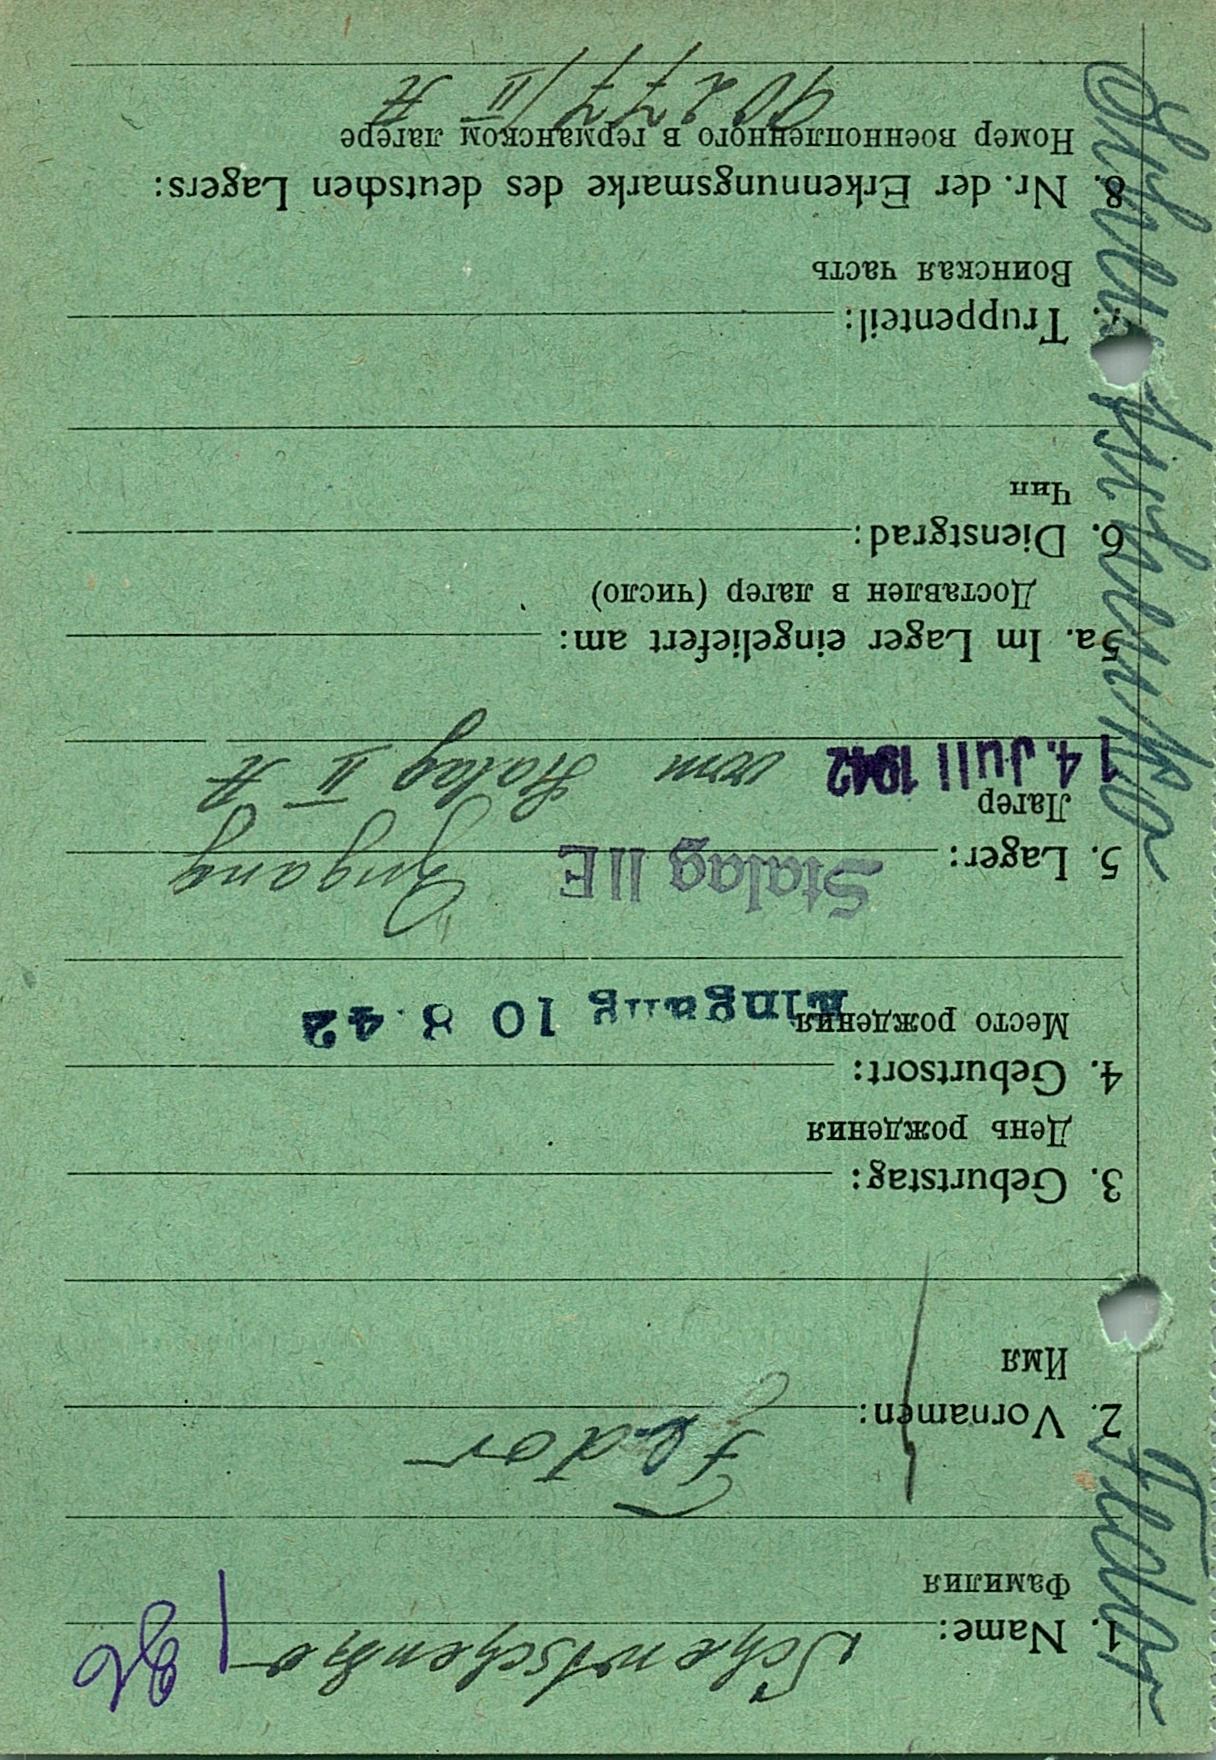 1. Name: Schewtschenko
Фамилия
2. Vornamen: Fedor
Имя
3. Geburtstag:
День рождения
4. Geburtsort:
Место рождения
Eingang 10 8.42
5. Lager: Stalag II E Zugang
Лагер
14. Juli 1942 vom Stalag II A
5a. Im Lager eingeliefert am:
Доставлен в лагер (число)
6. Dienstgrad:
Чин
7. Truppenteil:
Воинская часть
8. Nr. der Erkennungsmarke des deutschen Lagers:
Номер военнопленного в германском лагере
90277/II A
Fedor